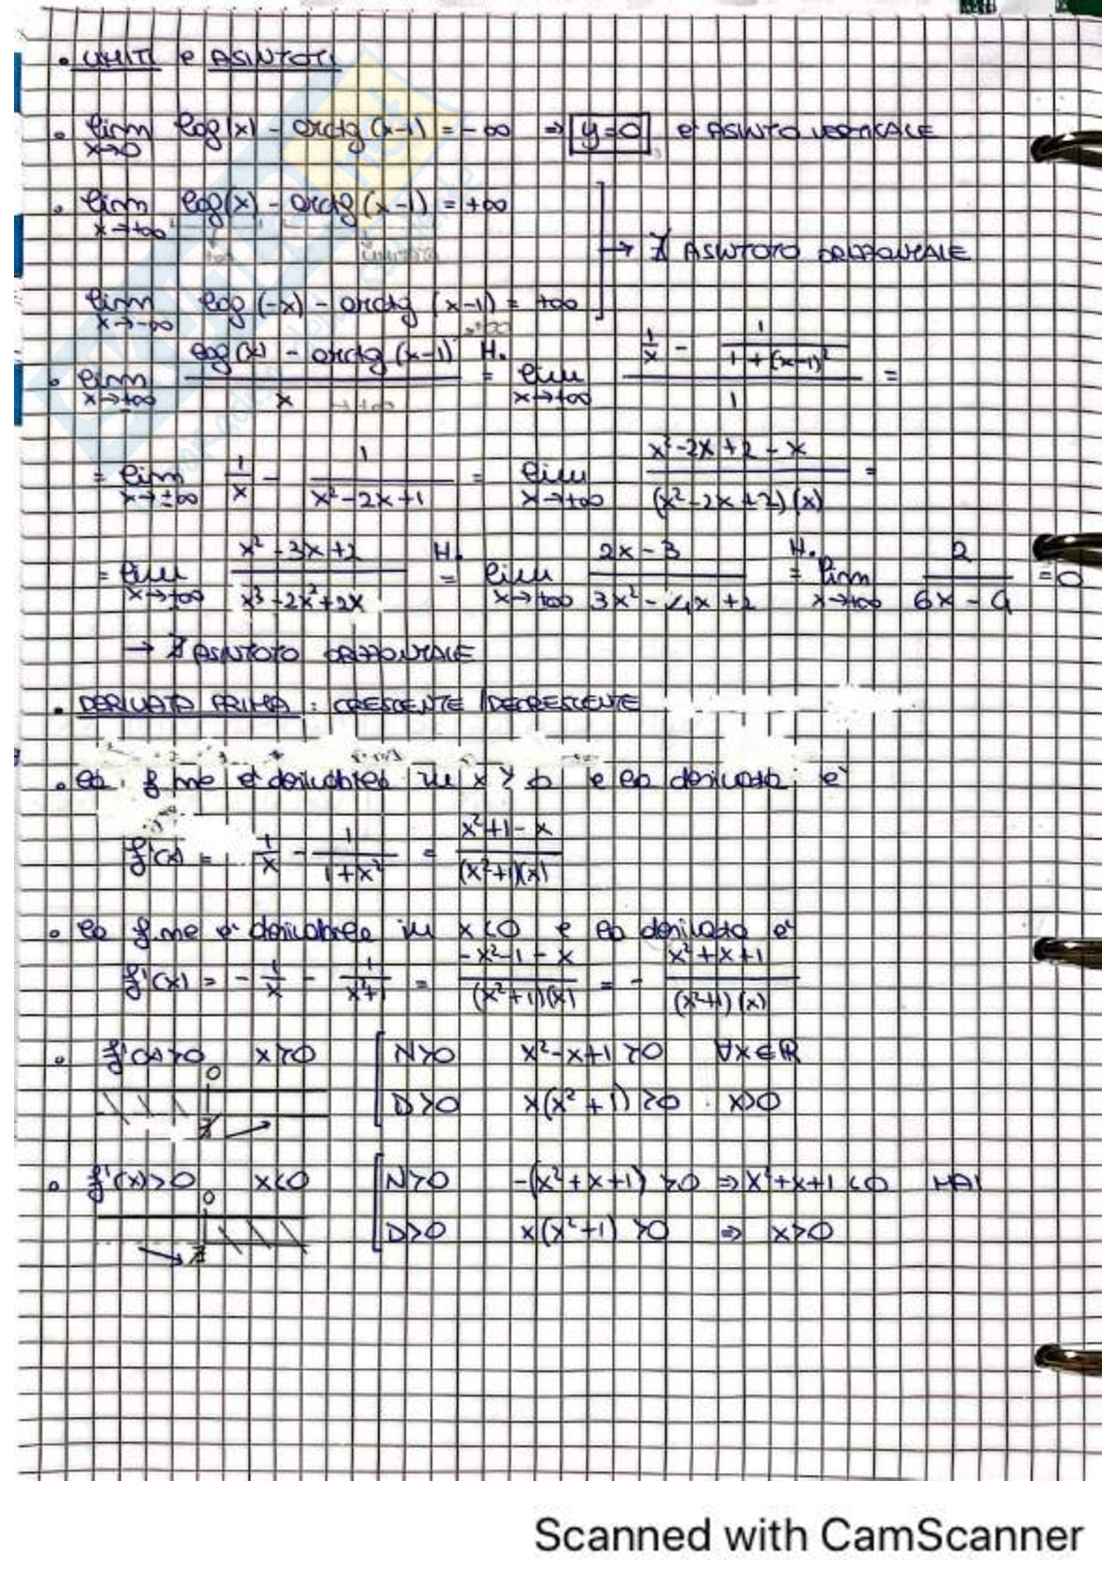 • LIMITI e ASINTOTI
• lim x→0 log|x| - arctg (x-1) = -∞ ⇒ y=0 è ASINTO VERTICALE
• lim x→+∞ log(x) - arctg (x-1) = +∞
→ ∄ ASINTOTO ORIZZONTALE
lim x→-∞ log (-x) - arctg (x-1) = +∞
• lim x→+∞ (log(x) - arctg (x-1))/x H. = lim x→+∞ (1/x - 1/(1+(x-1)²))/1 =
= lim x→±∞ 1/x - 1/(x²-2x+1) = lim x→+∞ (x²-2x+2-x)/((x²-2x+2)(x)) =
= lim x→+∞ (x²-3x+2)/(x³-2x²+2x) H. = lim x→+∞ (2x-3)/(3x²-4x+2) H. = lim x→+∞ 2/(6x-4) = 0
→ ∄ ASINTOTO ORIZZONTALE
• DERIVATA PRIMA : CRESCENTE /DECRESCENTE
• la f.ne è derivabile in x > 0 e la derivata è
f'(x) = 1/x - 1/(1+x²) = (x²+1-x)/((x²+1)(x))
• la f.ne è derivabile in x<0 e la derivata è
f'(x) = -1/x - 1/(x²+1) = (-x²-1-x)/((x²+1)(x)) = - (x²+x+1)/((x²+1)(x))
• f'(x)>0 x>0 [ N>0 x²-x+1>0 ∀x∈ℝ
0
D>0 x(x²+1)>0 x>0
∄
• f'(x)>0 x<0 [ N>0 -(x²+x+1)>0 ⇒ x²+x+1<0 MAI
0
D>0 x(x²+1)>0 ⇒ x>0
∄
Scanned with CamScanner